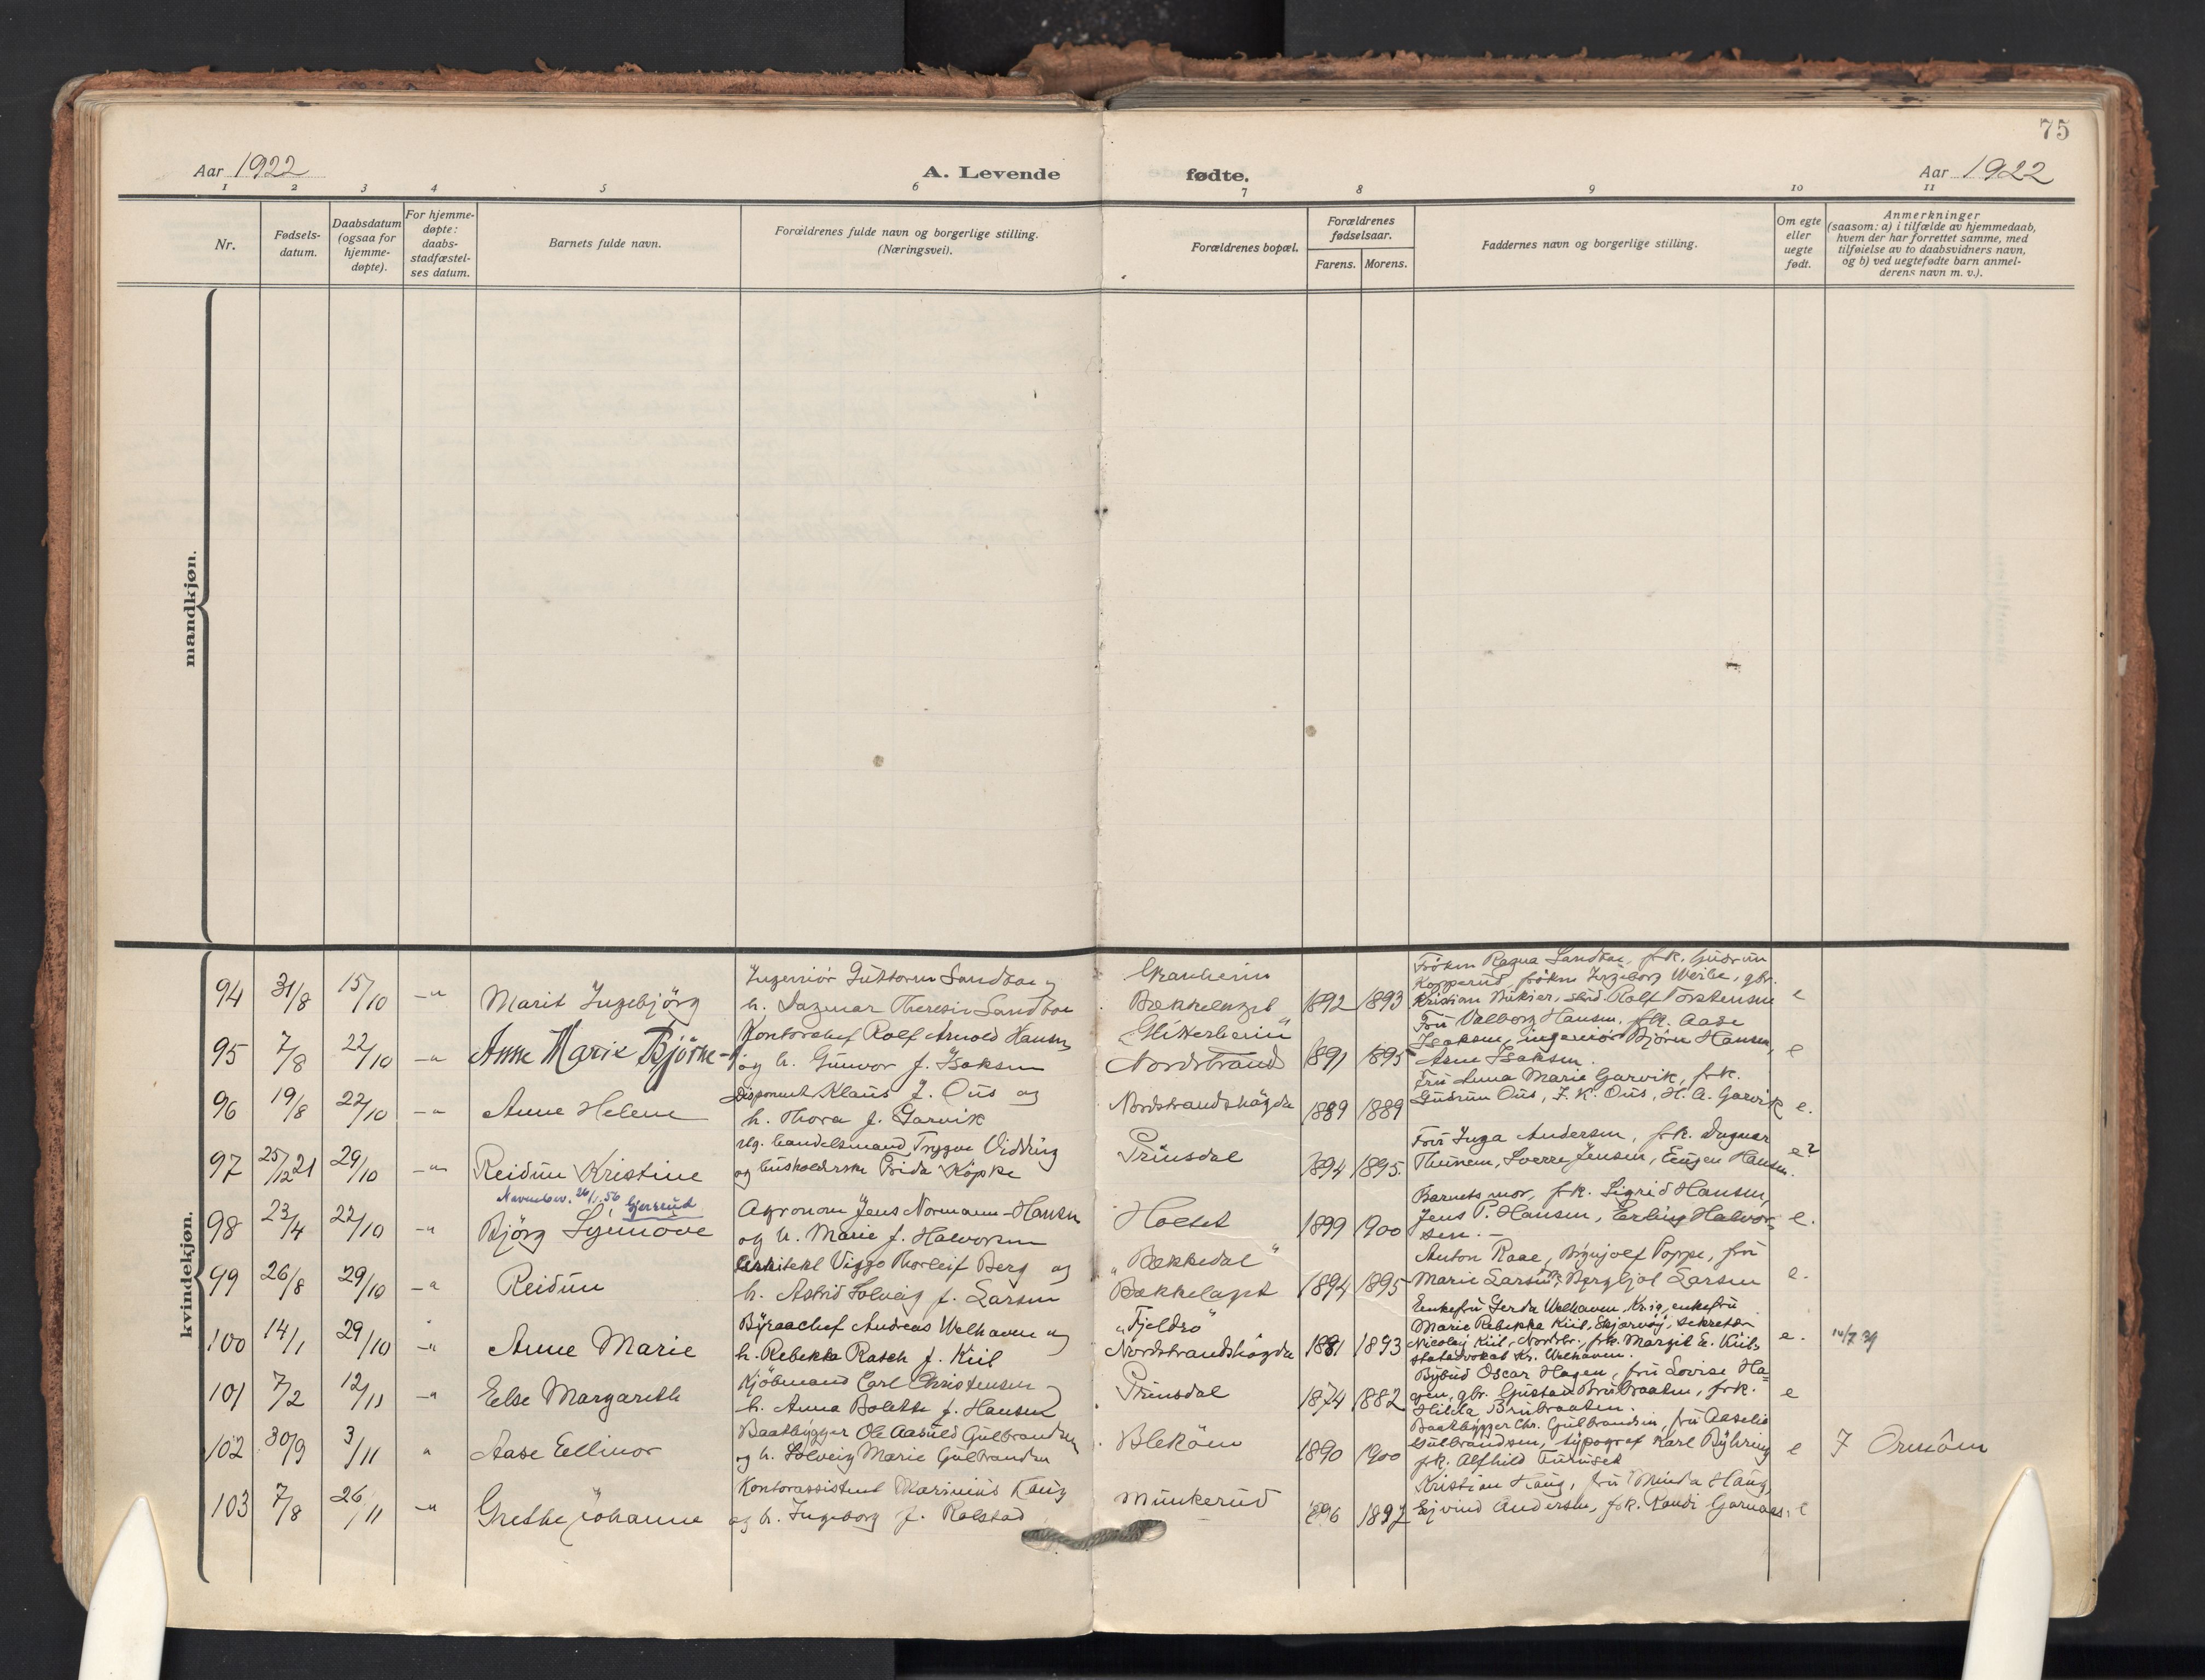 75
Aar 1922
A. Levende fødte.
Aar 1922
1 2 3 4 5 6 7 8 9 10 11
Nr.
Fødsels-
datum.
Daabsdatum
(ogsaa for
hjemme-
døpte).
For hjemme-
døpte:
daabs-
stadfæstel-
ses datum.
Barnets fulde navn.
Forældrenes fulde navn og borgerlige stilling.
(Næringsvei).
Forældrenes bopæl.
Forældrenes
fødselsaar.
Farens. Morens.
Faddernes navn og borgerlige stilling.
Om egte
eller
uegte
født.
Anmerkninger
(saasom: a) i tilfælde av hjemmedaab,
hvem der har forrettet samme, med
tilføielse av to daabsvidners navn,
og b) ved uegtefødte barn anmel-
derens navn m. v.).
mandkjøn.
kvindekjøn.
94 31/8 15/10 -"- Marit Ingebjörg
Ingeniör Guttorm Sandboe og
h. Dagmar Theresie Sandboe
Granheim
Bækkelaget
1892 1893
Fröken Ragna Sandboe, frk. Gudrun
Kopperud, fröken Ingeborg Weibe, gbr.
Kristian Bukier, stud. Rolf Torstensen
e
95 7/8 22/10 -"- Anne Marie Björne-
Kontorchef Rolf Arnold Hansen
og h. Gunvor f. Isaksen
"Glitterheim"
Nordstrand
1891 1895
Fru Valborg Hansen, frk. Aase
Isaksen, ingeniör Björn Hansen,
Arne Isaksen.
e
96 19/8 22/10 -"- Anne Helene
Disponent Klaus J. Ous og
h. Thora f. Garvik
Nordstrandshögda
1889 1889
Fru Anna Marie Garvik, frk.
Gudrun Ous, J. K. Ous, H. A. Garvik
e.
97 25/12 21 29/10 -"- Reidun Kristine
og husholderske Frida Köpke
Prinsdal
1894 1895.
Fru Inga Andersen, frk. Dagmar
Thunem, Sverre Jensen, Eugen Hansen.
e?
November. 26/1.56 Gjersrud
98 23/4 22/10 -"- Björg Synnöve
Agronom Jens Normann-Hansen
og h. Marie f. Halvorsen
Holtet
1899 1900
Barnets mor, frk. Sigrid Hansen,
Jens P. Hansen, Erling Halvor-
sen. -
e.
99 26/8 29/10 -"- Reidun
Arkitekt Viggo Thorleif Berg og
h. Astrid Solveig f. Larsen
"Bækkedal"
Bækkelaget
1894 1895
Anton Raae, Brynjolf Poppe, fru
Marie Larsen, frk. Bergljot Larsen
e.
100 14/1 29/10 -"- Anne Marie
Byraachef Andreas Welhaven og
h. Rebekka Rasch f. Kiil
"Fjeldro"
Nordstrandshögda
1881 1893
Enkefru Gerda Welhaven, Kr.ia, enkefru
Marie Rebekka Kiil, Skjervöy, sekretær
Nicolay Kiil, Nordstr., frk. Margit E. Kiil,
statsadvokat Kr. Welhaven.
e. 14/7 39
101 7/2 12/11 -"- Else Margareth
Kjöbmand Carl Christensen og
h. Anna Bolette f. Hansen
Prinsdal
1874 1882
Bybud Oscar Hagen, fru Lovise Ha-
gen, gbr. Gustav Brubraaten, frk.
Hilda Brubraaten.
e
102 30/9 3/11 " Aase Ellinor
Baatbygger Ole Aasuld Gulbrandsen
og h. Solveig Marie Gulbrandsen
Blekøen
1890 1900
Baatbygger Chr. Gulbrandsen, fru Aaselie
Gulbrandsen, typograf Karl Ryhring
frk. Alfhild Furuset
e 7 Ormöen
103 7/8 26/11 -"- Grethe Johanne
Kontorassistent Marinius Haug
og h. Ingeborg f. Rolstad
Munkerud
1896 1897
Kristian Haug, fru Minda Haug,
Ejvind Andersen, frk. Randi Garnaas.
e